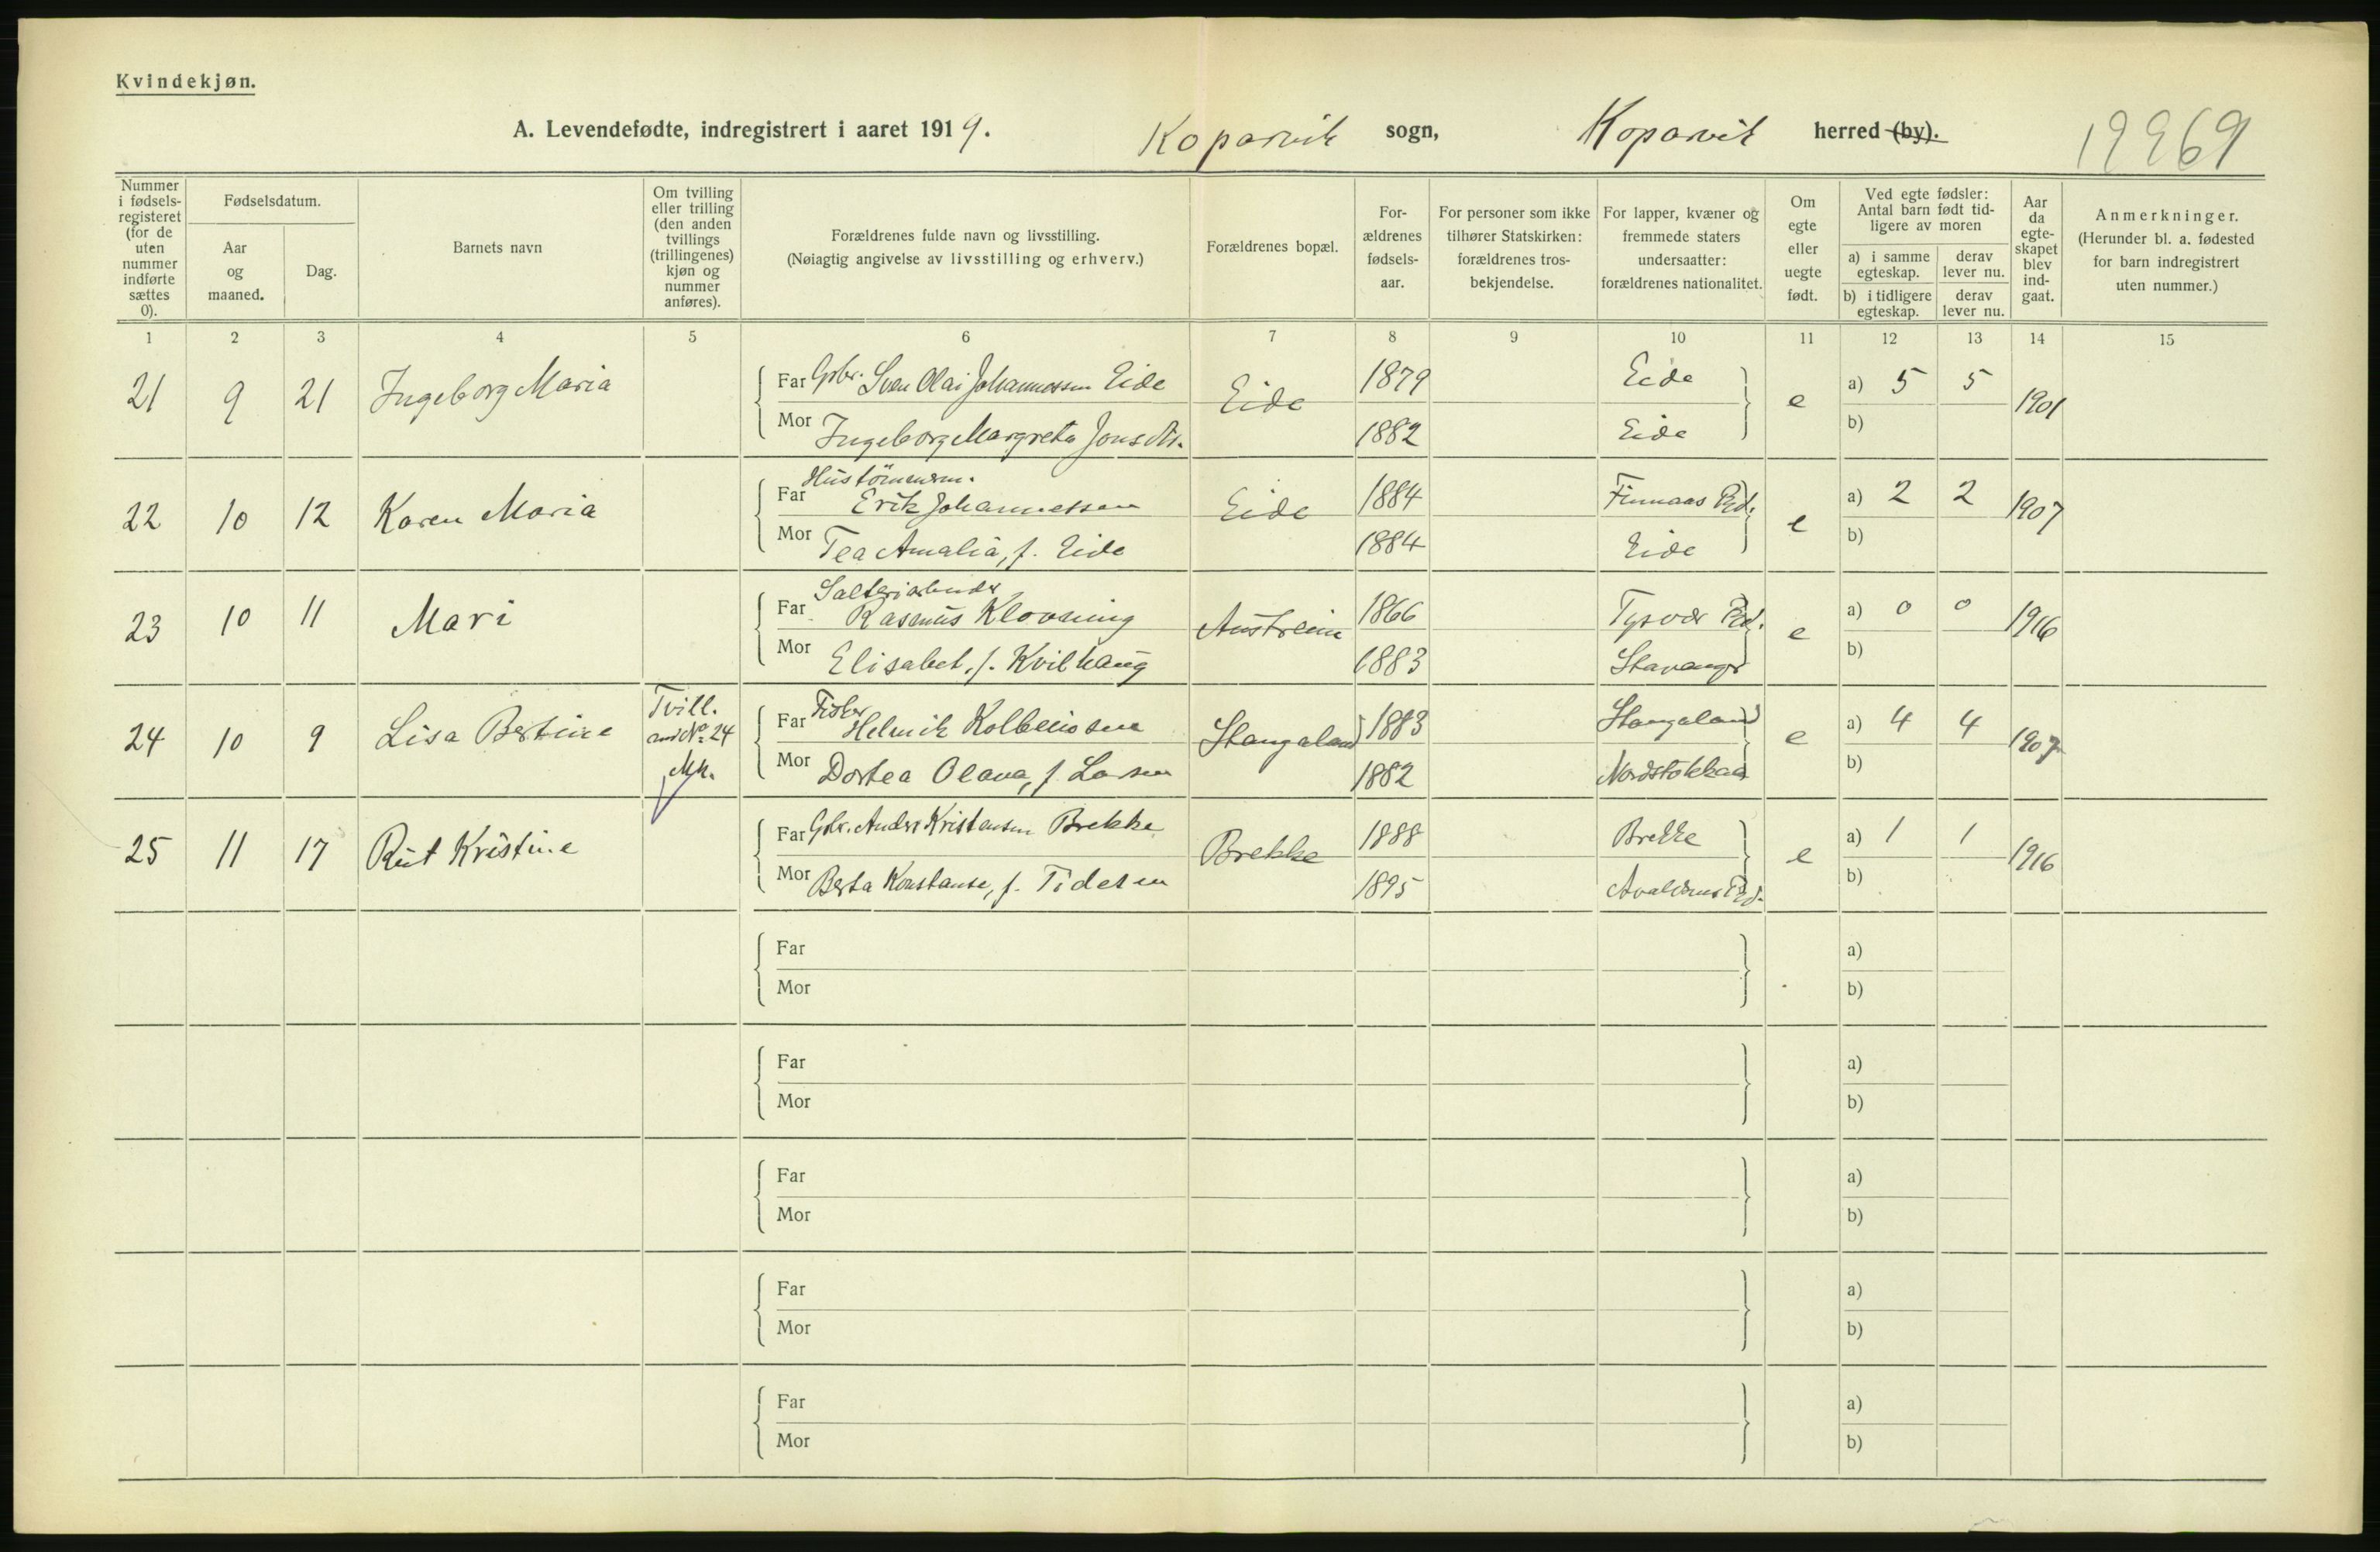 Kvindekjøn.
A. Levendefødte, indregistrert i aaret 1919. Kopervik sogn, Kopervik herred (by). 19969
Nummer i fødsels-registeret (for de uten nummer indførte sættes 0).
Fødselsdatum.
Aar og maaned.
Dag.
Barnets navn
Om tvilling eller trilling (den anden tvillings (trillingenes) kjøn og nummer anføres).
Forældrenes fulde navn og livsstilling.
(Nøiagtig angivelse av livsstilling og erhverv.)
Forældrenes bopæl.
For-ældrenes fødsels-aar.
For personer som ikke tilhører Statskirken: forældrenes tros-bekjendelse.
For lapper, kvæner og fremmede staters undersaatter: forældrenes nationalitet.
Om egte eller uegte født.
Ved egte fødsler: Antal barn født tid-ligere av moren
a) i samme egteskap.
derav lever nu.
b) i tidligere egteskap.
derav lever nu.
Aar da egte-skapet blev ind-gaat.
Anmerkninger.
(Herunder bl. a. fødested for barn indregistrert uten nummer.)
1 2 3 4 5 6 7 8 9 10 11 12 13 14 15
21 9 21 Ingeborg Maria Far Gbr. Sven Olai Johannessen Eide Eide 1879 Eide e a) 5 5 1901
Mor Ingeborg Margreta Jonsdtr. 1882 Eide b)
Hustømmerm.
22 10 12 Karen Maria Far Erik Johannessen Eide 1884 Finnaas Pd. e a) 2 2 1907
Mor Tea Amalia, f. Eide 1884 Eide b)
Salteriarbeider
23 10 11 Mari Far Rasmus Klovning Austreim 1866 Tysvær Pd. e a) 0 0 1916
Mor Elisabet, f. Kvilhaug 1883 Stavanger b)
24 10 9 Lisa Bertine Tvill. m. No 24 Mk. Far Fisker Helmik Kolbeinsen Stangaland 1883 Stangaland e a) 4 4 1907
Mor Dortea Olava, f. Larsen 1882 Nordstokkaa b)
25 11 17 Rut Kristine Far Gbr. Anders Kristensen Brekke Brekke 1888 Brekke e a) 1 1 1916
Mor Berta Konstanse, f. Tidesen 1895 Avaldsnes Pd. b)
Far a)
Mor b)
Far a)
Mor b)
Far a)
Mor b)
Far a)
Mor b)
Far a)
Mor b)